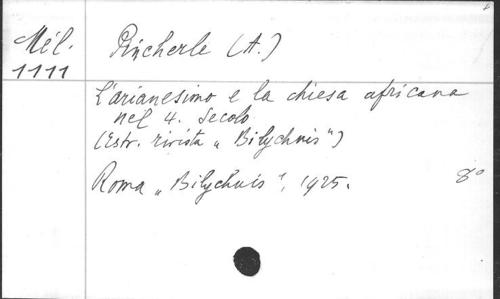 Mél. Pincherle (A.)
1111
L'arianesimo e la chiesa africana
nel 4. Secolo
(Estr. rivista „Bilychnis")
Roma „Bilychnis", 1925. 8°